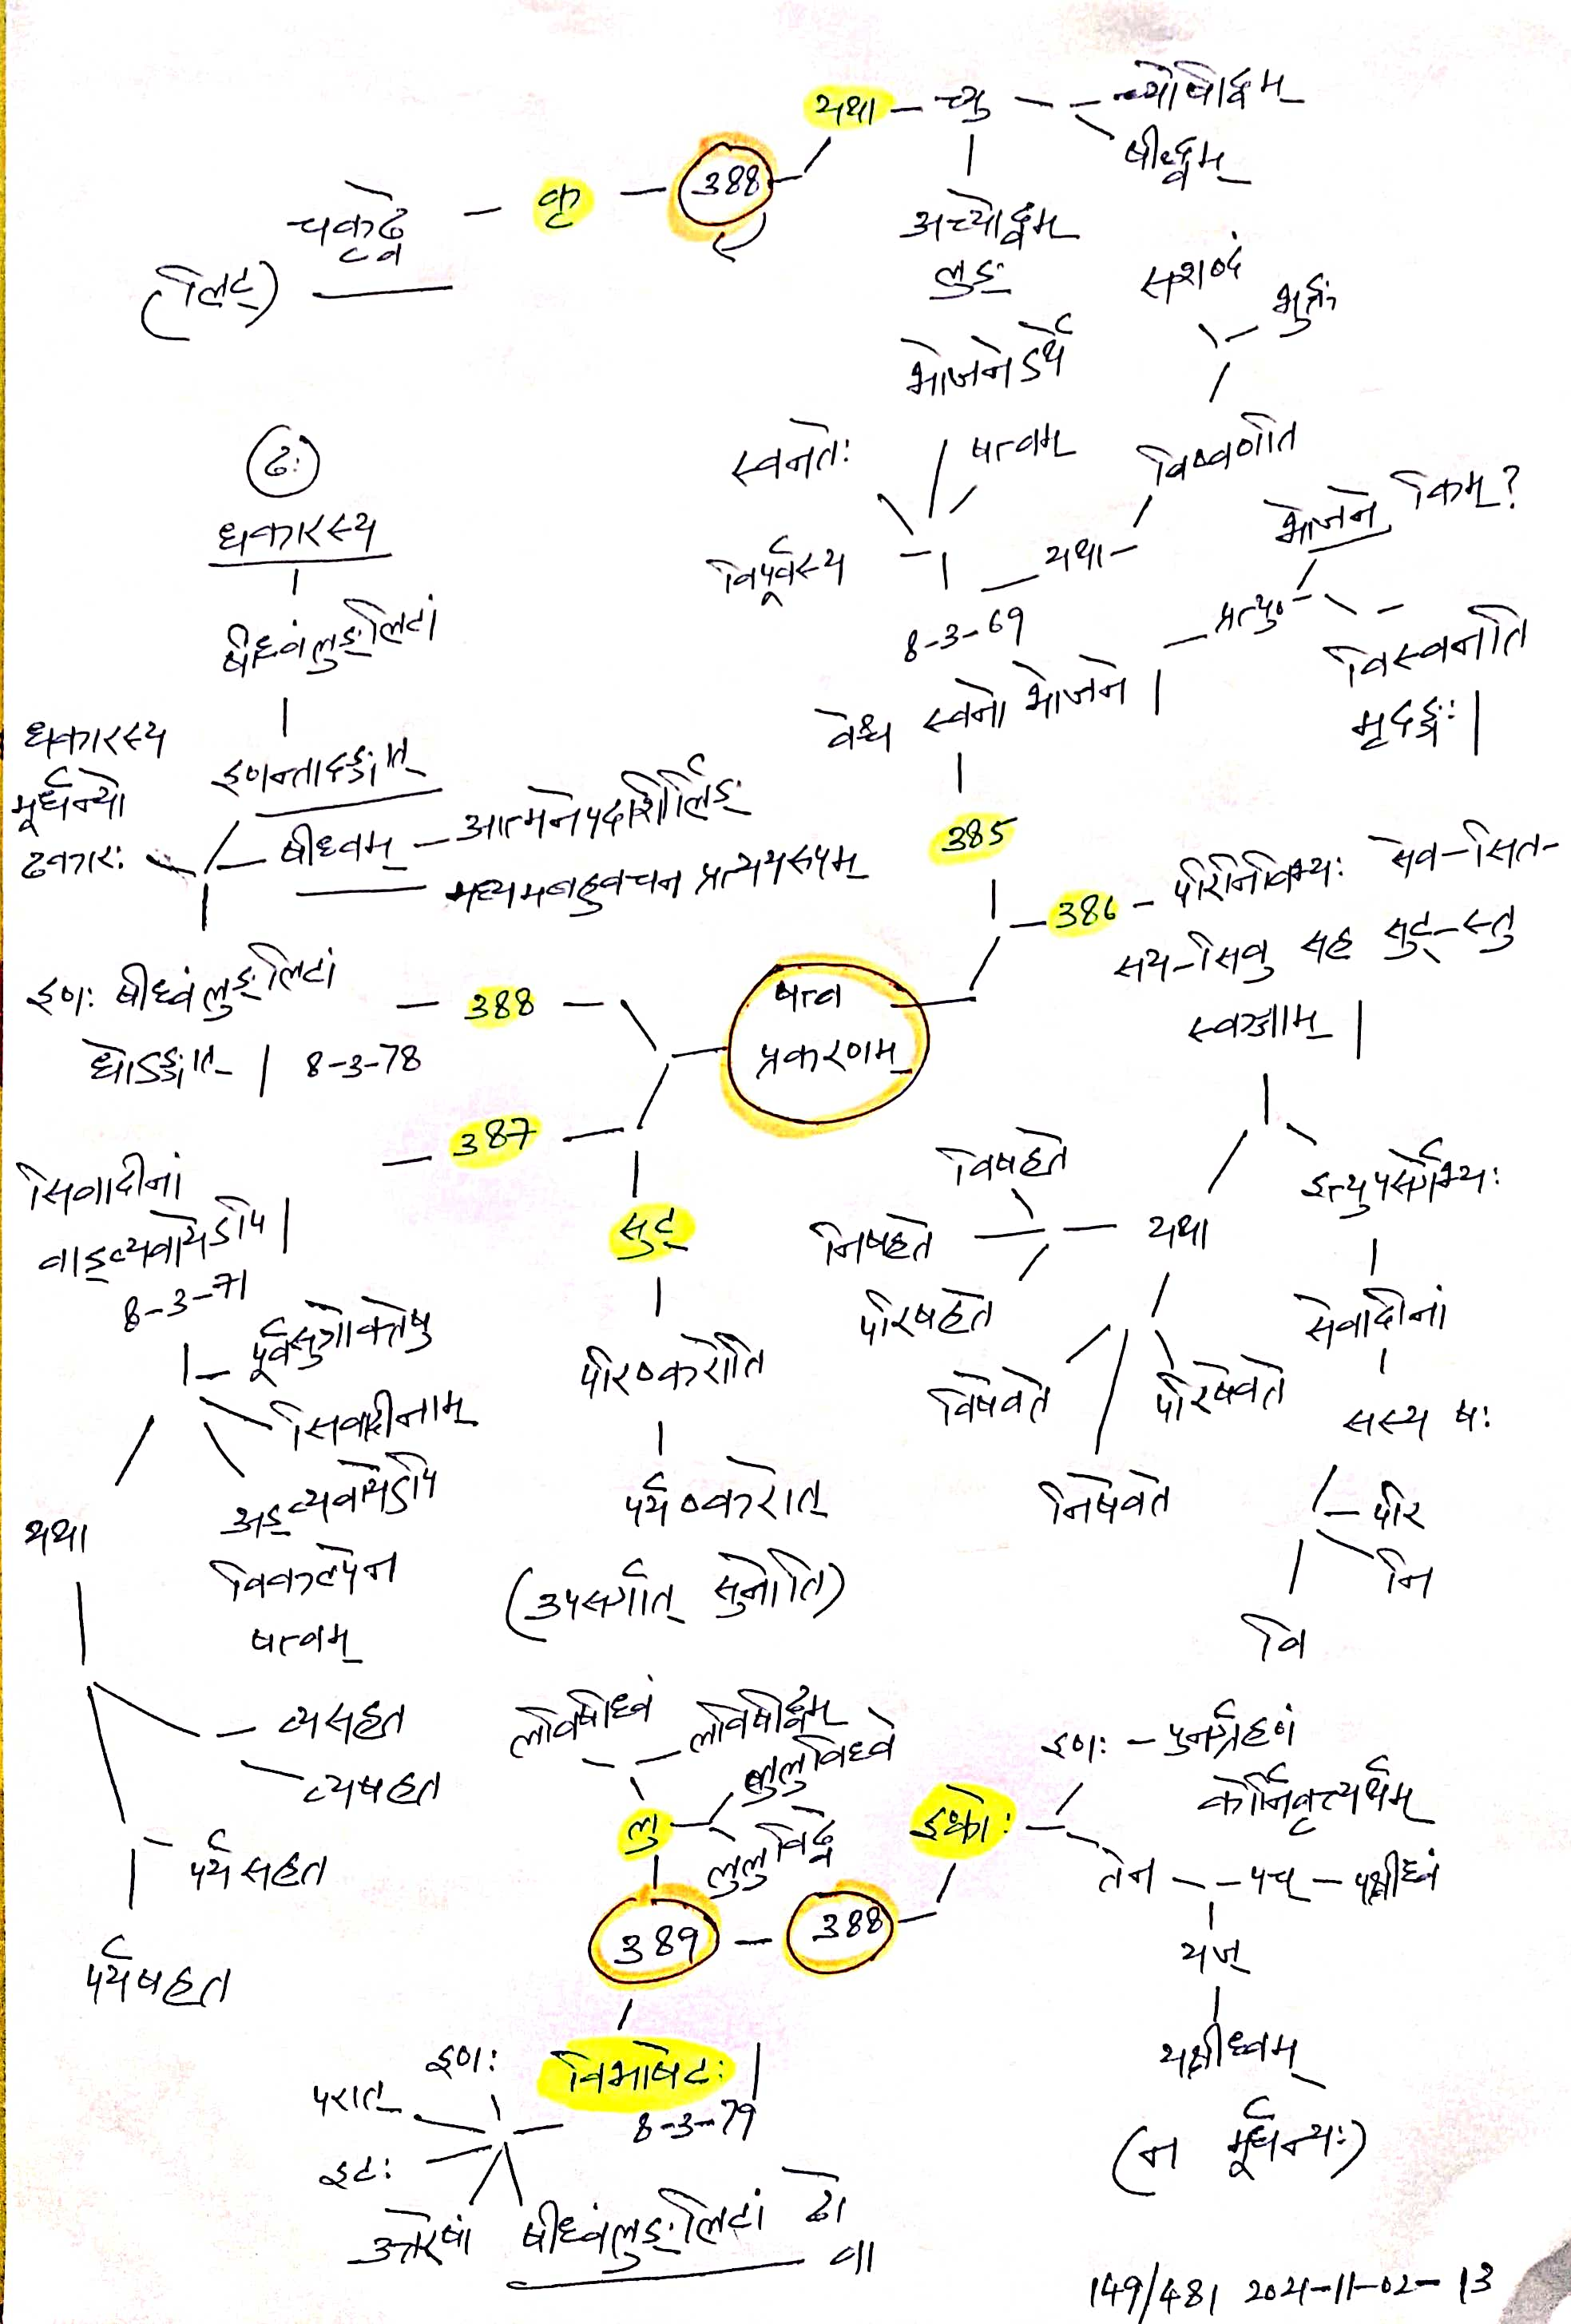 यथा – च्यु – च्योषीढ्वम्
षीढ्वम्
चकृढ्वे – कृ – 388
(लिट्)
अच्योढ्वम्
लुङ्
सशब्दं
भुङ्क्ते
भोजनेऽर्थे
स्वनतेः
षत्वम्
विष्वणति
विपूर्वस्य
यथा
8-3-69
वेश्च स्वनो भोजने |
प्रत्यु०
भोजने किम्?
विस्वनति
मृदङ्गः |
385
ढः
धकारस्य
षीध्वंलुङ्लिटां
इणन्तादङ्गात्
धकारस्य
मूर्धन्यो
ढकारः
षीध्वम् – आत्मनेपदाशीर्लिङ्
मध्यमबहुवचन प्रत्ययरूपम्
386 – परिनिविभ्यः सेव-सित-
सय-सिवु सह सुट्-स्तु
स्वञ्जाम् |
षत्व
प्रकरणम्
इणः षीध्वंलुङ्लिटां – 388
धोऽङ्गात् | 8-3-78
387
सिवादीनां
वाड्व्यवायेऽपि |
8-3-71
पूर्वसूत्रोक्तेषु
सिवादीनाम्
अड्व्यवायेऽपि
विकल्पेन
षत्वम्
यथा
व्यसहत
व्यषहत
पर्यसहत
पर्यषहत
सुट्
परिष्करोति
पर्यष्करोत्
(उपसर्गात् सुनोति)
विषहते
निषहते
परिषहते
यथा
विषेवते
परिषेवते
निषेवते
इत्युपसर्गेभ्यः
सेवादीनां
सस्य षः
परि
नि
वि
लविषीध्वं
लविषीढ्वम्
लुलुविध्वे
लु
लुलुविढ्वे
389 – 388
इण्कोः
इणः – पुनर्ग्रहणं
कोर्निवृत्त्यर्थम्
तेन – पच् – पक्षीध्वं
यज्
यक्षीध्वम्
(न मूर्धन्यः)
विभाषेटः |
8-3-79
इणः
परात्
इटः
उत्तरेषां
षीध्वंलुङ्लिटां ढो
वा
149/481 2021-11-02-13